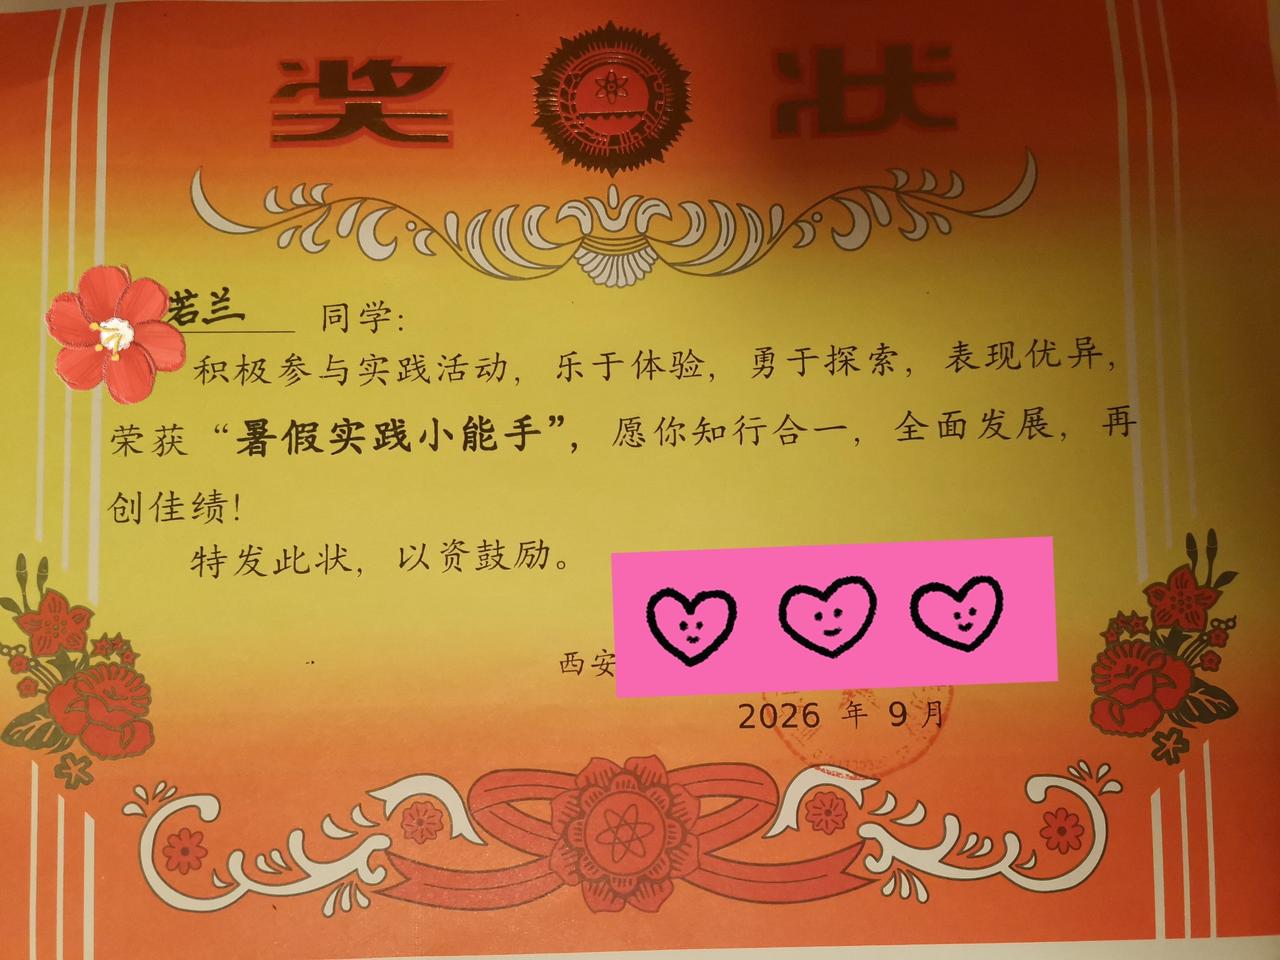 奖 状
若兰 同学:
积极参与实践活动，乐于体验，勇于探索，表现优异，
荣获“暑假实践小能手”，愿你知行合一，全面发展，再
创佳绩!
特发此状，以资鼓励。
西安
2026 年 9 月